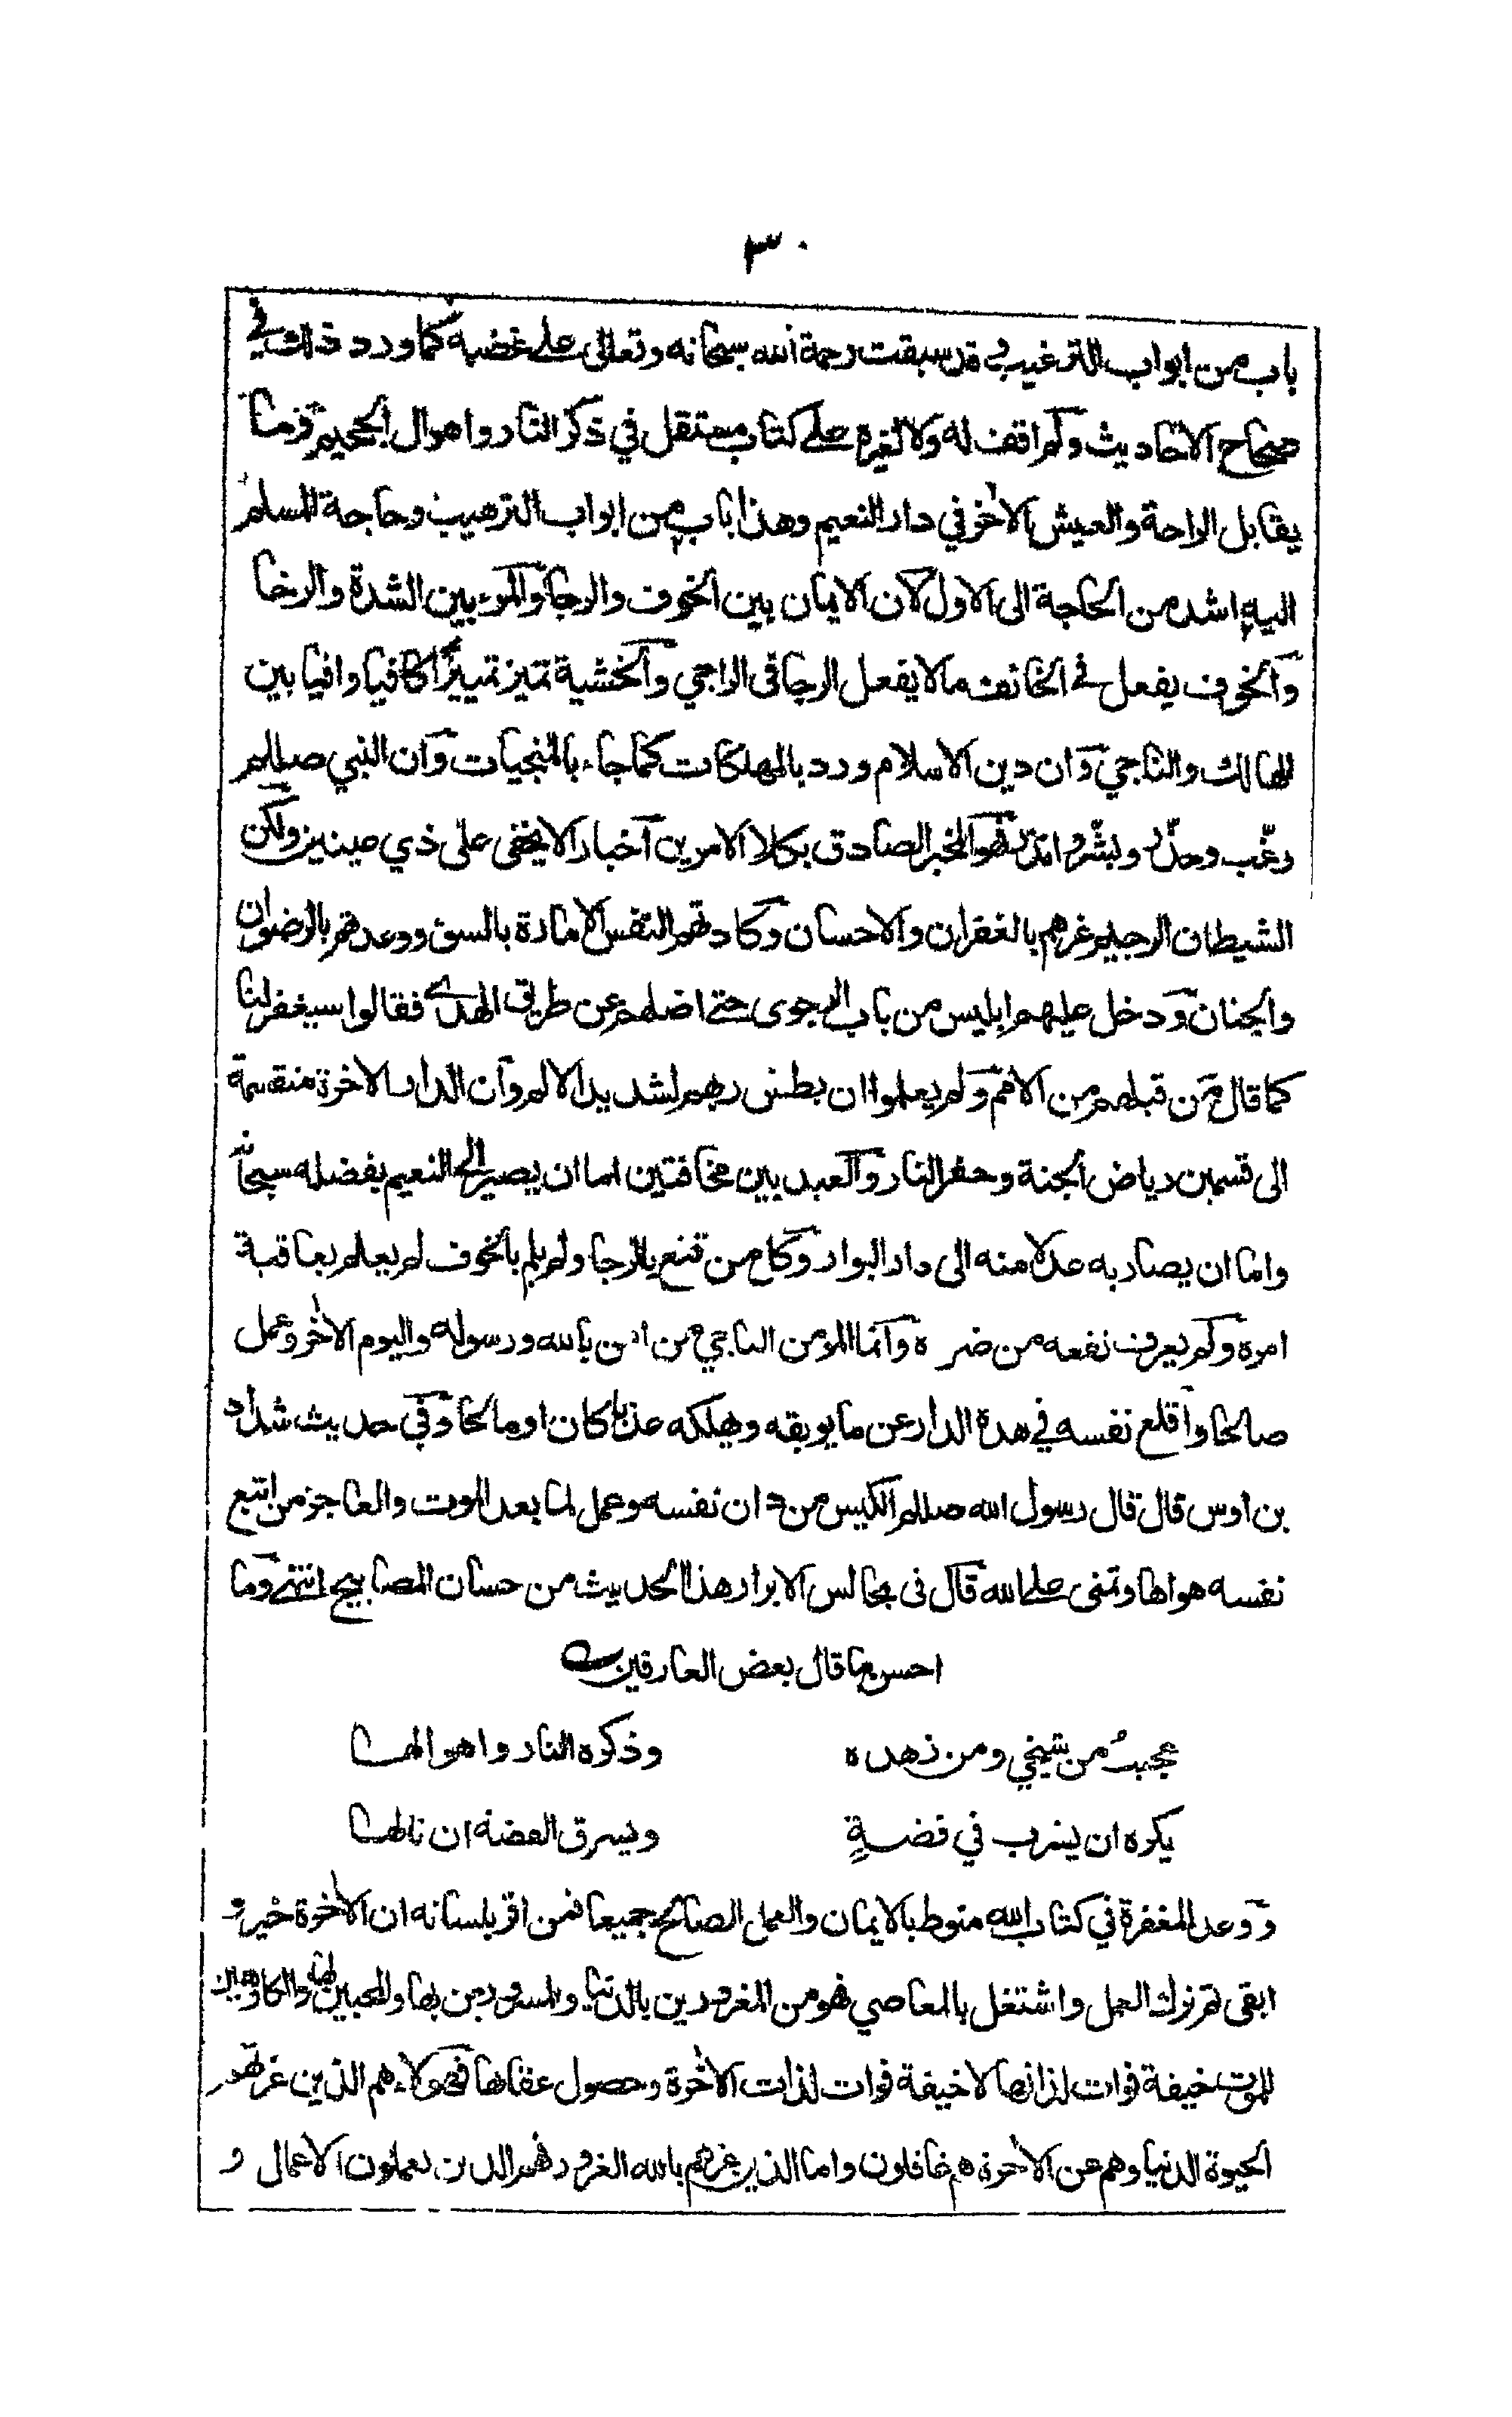 ٣٠
باب من ابواب الترغيب و قد سبقت رحمة الله سبحانه وتعالى على غضبه كما ورد ذلك في
صحاح الاحاديث ولم اقف له ولا لغيره على كتاب مستقل في ذكر النار واهوال الجحيم
يقابل الراحة والعيش الاخر في دار النعيم وهذا باب من ابواب الترهيب وحاجة المسلم
اليه اشد من الحاجة الى الاول لان الايمان بين الخوف والرجا والمرء بين الشدة والرخا
والخوف يفعل في الخائف ما لا يفعل الرجا في الراجي والخشية تميز تمييزا كافيا وافيا بين
الهالك والناجي وان دين الاسلام ورد بالمهلكات كما جاء بالمنجيات وان النبي صللم
رغّب وحذّر وبشّر وانذر فهو المخبر الصادق بكلا الامرين اخبارا لا يخفى على ذي عينين ولكن
الشيطان الرجيم غرهم بالغفران والاحسان وكادتهم النفس الامارة بالسوء ووعدتهم بالرضوان
والجنان ودخل عليهم ابليس من باب الرجوى حتى اضلهم عن طريق الهدى فقالوا سيغفر لنا
كما قال من قبلهم من الامم ولم يعلموا ان بطش ربهم لشديد الالم وان الدار الاخرة منقسمة
الى قسمين رياض الجنة وحفر النار والعبد بين مخافتين اما ان يصير الى النعيم بفضله سبحانه
واما ان يصار به عدلا منه الى دار البوار وكل من قنع بالرجا ولم يلم بالخوف لم يعلم بعاقبة
امره ولم يعرف نفعه من ضره وانما المؤمن الناجي من امن بالله ورسوله واليوم الاخر وعمل
صالحا واقلع نفسه في هذه الدار عن ما يوبقه ويهلكه عذبا كان او مالحا وفي حديث شداد
بن اوس قال قال رسول الله صللم الكيس من دان نفسه وعمل لما بعد الموت والعاجز من اتبع
نفسه هواها وتمنى على الله قال في مجالس الابرار هذا الحديث من حسان المصابيح انتهى وما
احسن ما قال بعض العارفين
عجبتُ من شيخي ومن زهده وذكره النار واهوالها
يكره ان يشرب في فضةٍ ويسرق الفضة ان نالها
ووعد المغفرة في كتاب الله منوط بالايمان والعمل الصالح جميعا فمن اقر بلسانه ان الاخرة خير و
ابقى ثم ترك العمل واشتغل بالمعاصي فهو من المغرورين بالدنيا والمسرورين بها والمحبين لها والكارهين
للموت خيفة فوات لذاتها لا خيفة فوات لذات الاخرة وحصول عقابها فهؤلاء هم الذين غرتهم
الحيوة الدنيا وهم عن الاخرة هم غافلون واما الذين غرهم بالله الغرور فهم الذين يعملون الاعمال و